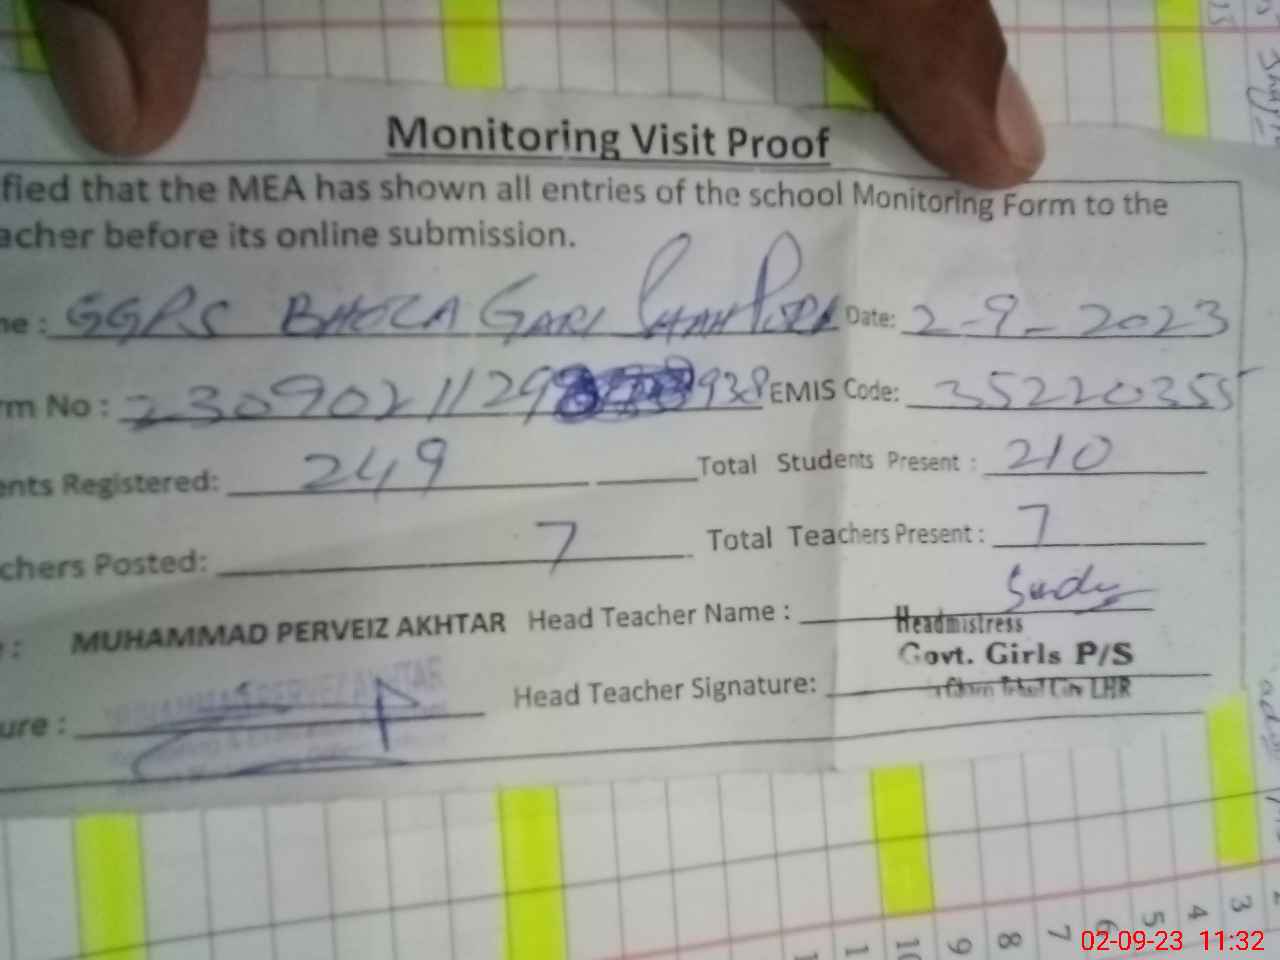 Monitoring Visit Proof
fied that the MEA has shown all entries of the school Monitoring Form to the
acher before its online submission.
ne : GGPS BHOLA GARI Date: 2-9-2023
rm No : 2309021129 938 EMIS Code: 35220355
ents Registered: 249 Total Students Present : 210
chers Posted: 7 Total Teachers Present : 7
: MUHAMMAD PERVEIZ AKHTAR Head Teacher Name :
Headmistress
Govt. Girls P/S
ure : Head Teacher Signature: LHR
10 9 8 7 6 5 4 3
02-09-23 11:32